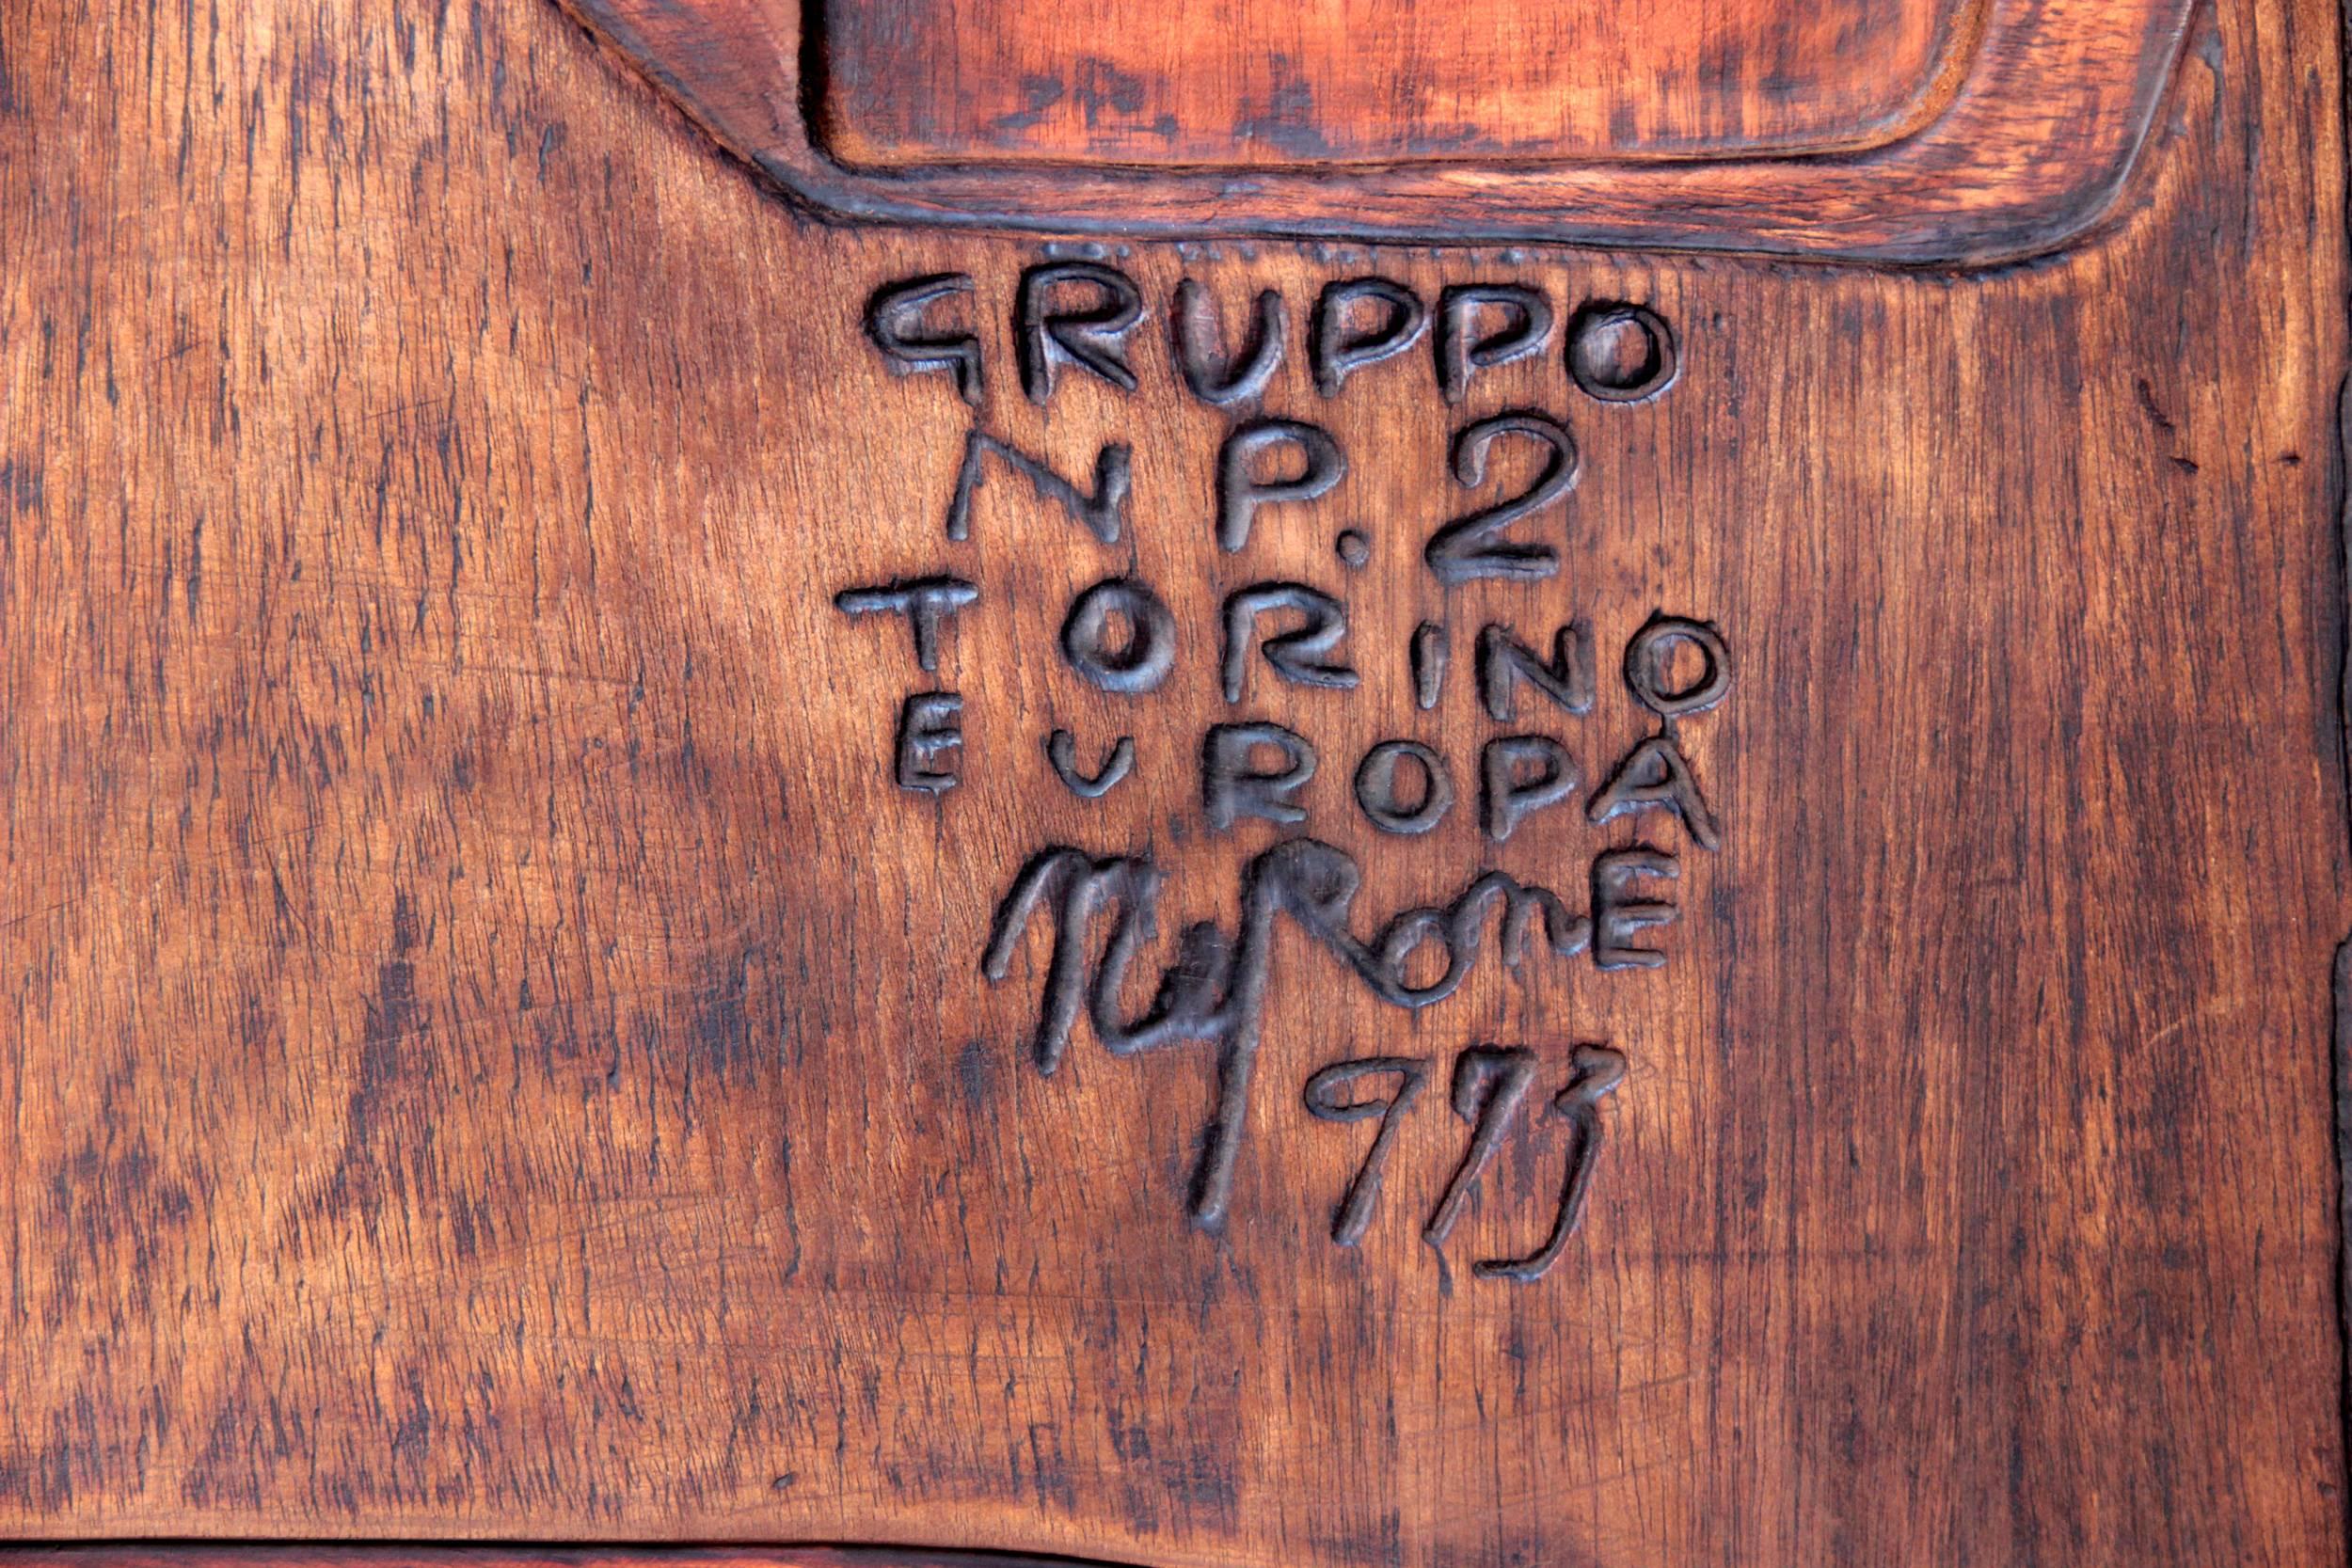 GRUPPO
N P. 2
TORINO
EUROPA
NeRONE
973